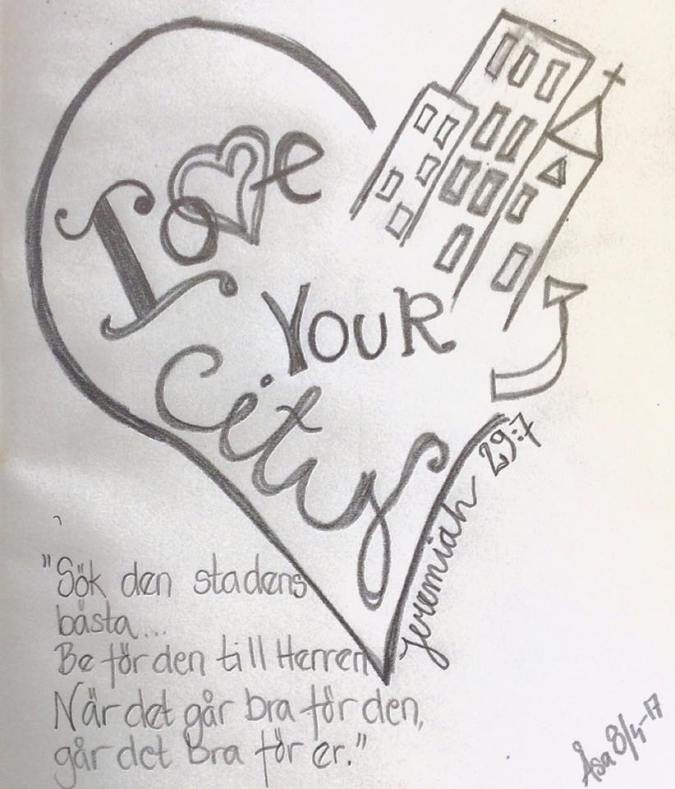 Love
YOUR
City
Jeremiah 29:7
"Sök den stadens
bästa...
Be för den till Herren
När det går bra för den,
går det bra för er."
Åsa 8/4-17